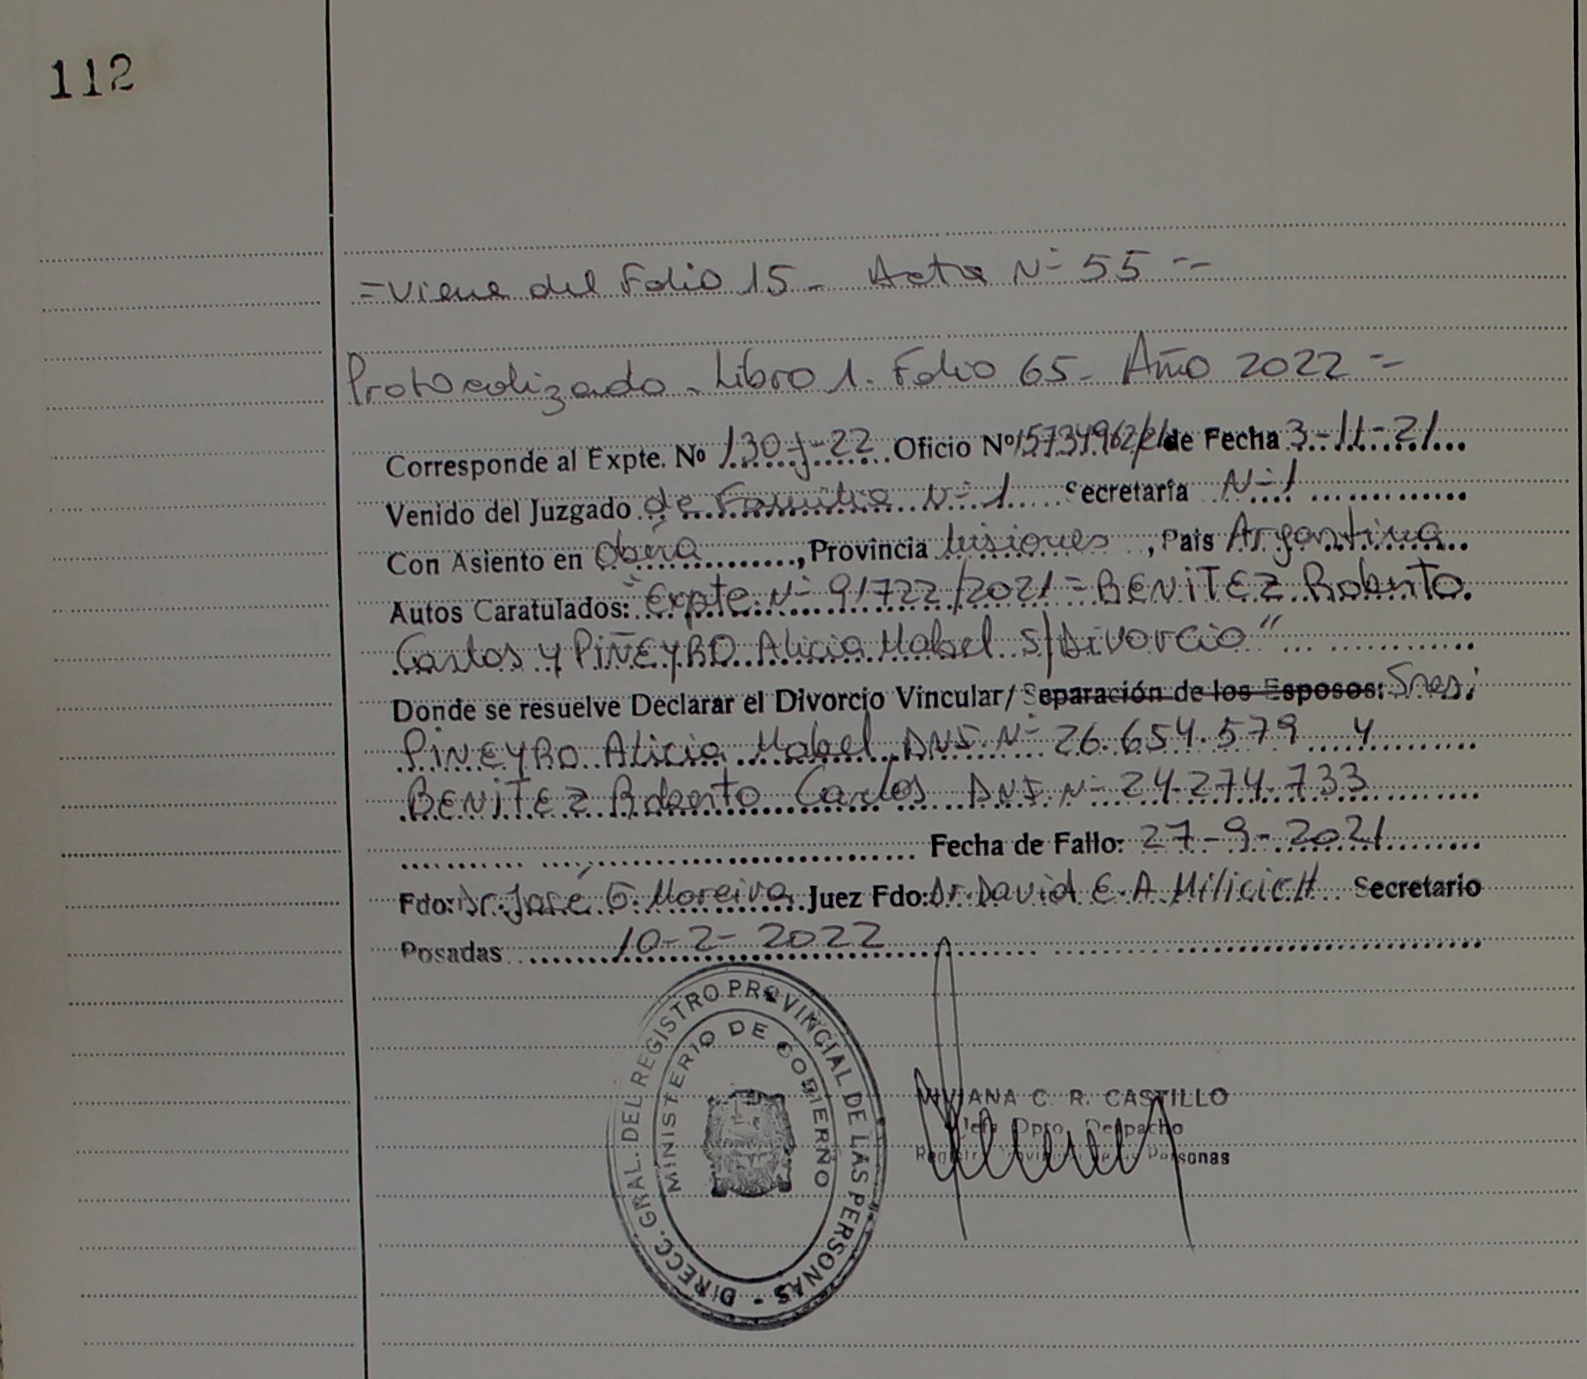 112
=Viene del Folio 15_ Acta Nº 55 =
Protocolizado - Libro 1. Folio 65- Año 2022 =
Corresponde al Expte. Nº 130-J-22 Oficio Nº 15734962/21 de Fecha 3-11-21
Venido del Juzgado de Familia Nº 1 Secretaría Nº 1
Con Asiento en Oberá, Provincia Misiones, País Argentina
Autos Caratulados: "Expte. Nº 91722/2021 = BENITEZ Roberto
Carlos y PIÑEYRO Alicia Mabel S/ Divorcio"
Donde se resuelve Declarar el Divorcio Vincular/ Separación de los Esposos: Sres;
PIÑEYRO Alicia Mabel DNI. Nº 26.654.579 y
BENITEZ Roberto Carlos DNI Nº 24.274.733
Fecha de Fallo: 27-9-2021
Fdo: Dr. José G. Moreira Juez Fdo: Dr. David E. A. Milicich Secretario
Posadas 10-2-2022
DIRECC. GRAL. DEL REGISTRO PROVINCIAL DE LAS PERSONAS -
MINISTERIO DE GOBIERNO
VIVIANA C. R. CASTILLO
Jefa Dpto. Despacho
Registro Provincial de las Personas